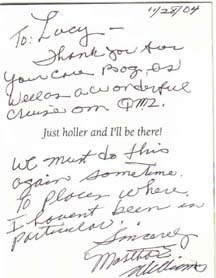 11/28/04
To: Lucy –
Thank you for
your care
well as a wonderful
cruise on QM2.
Just holler and I'll be there!
We must do this
again sometime.
To places where
I haven't been in
particular!
Sincerely
Martha
Williams